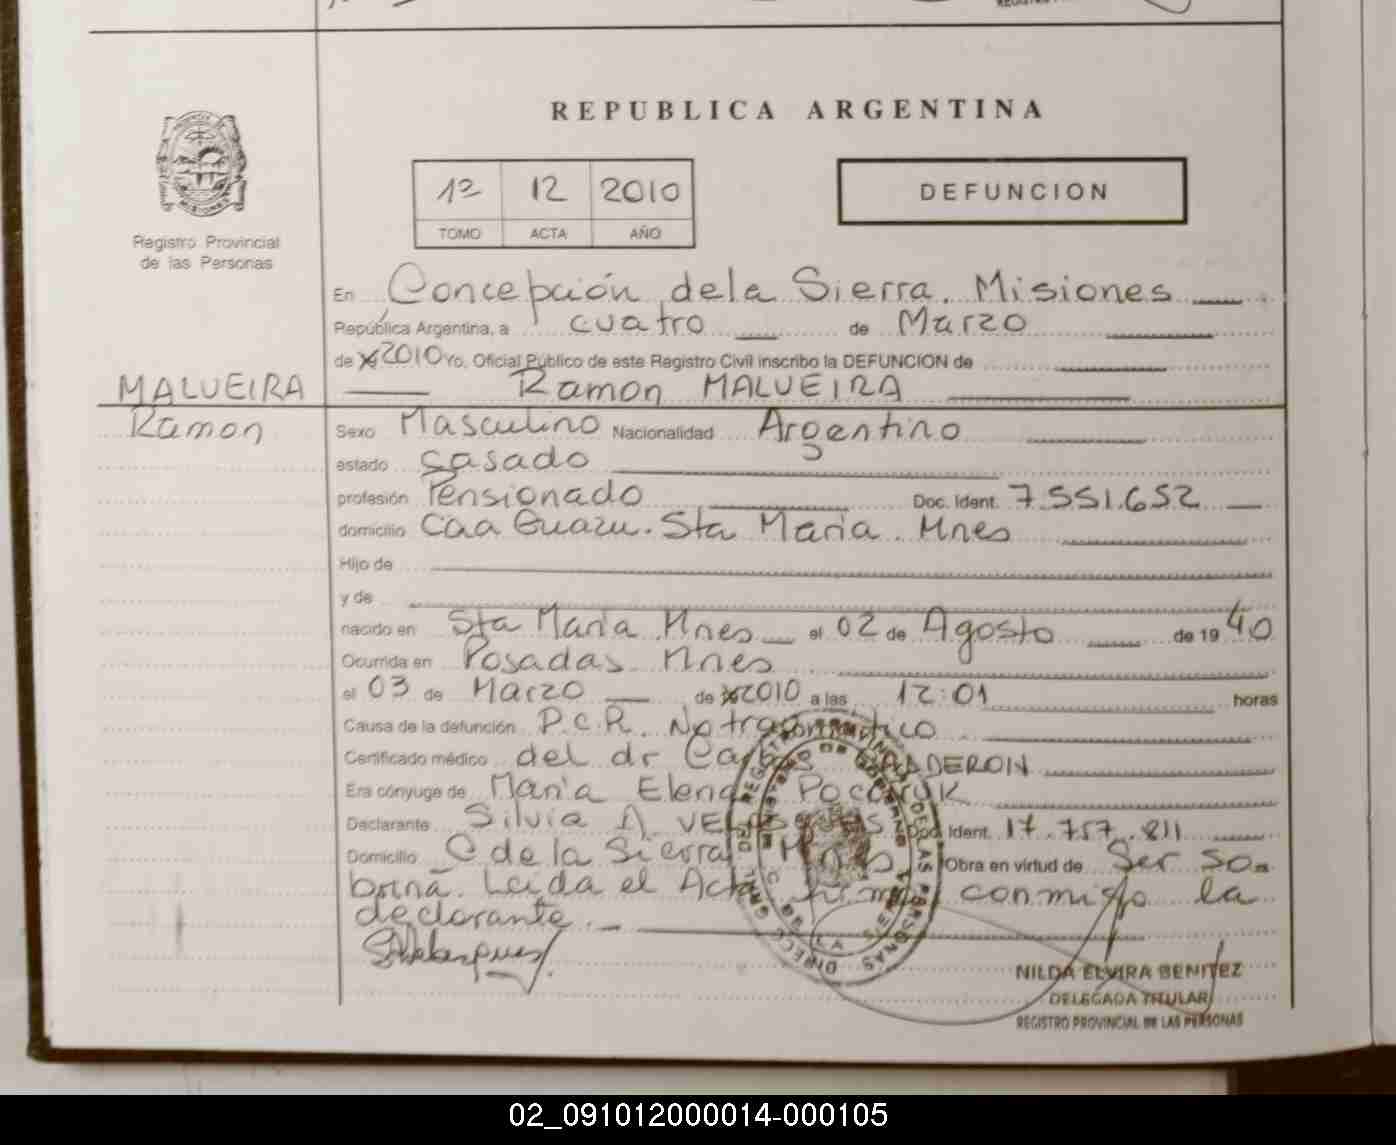 REPUBLICA ARGENTINA
MISIONES
Registro Provincial
de las Personas
1º 12 2010
TOMO ACTA AÑO
DEFUNCION
En Concepción de la Sierra. Misiones
República Argentina, a cuatro de Marzo
de 2010 Yo, Oficial Público de este Registro Civil inscribo la DEFUNCION de
Ramon MALUEIRA
MALUEIRA
Ramon
Sexo Masculino Nacionalidad Argentino
estado Casado
profesión Pensionado Doc. Ident. 7.551.652
domicilio Caa Guazu. Sta Maria. Mnes
Hijo de
y de
nacido en Sta Maria Mnes el 02 de Agosto de 1940
Ocurrida en Posadas Mnes
el 03 de Marzo de 2010 a las 12:01 horas
Causa de la defunción P.C.R. No traumatico
Certificado médico del dr Carlos CALDERON
Era cónyuge de Maria Elena
Declarante Silvia A. Doc. Ident. 17.757.811
Domicilio C de la Sierra Mnes Obra en virtud de Ser so-
brina. Leida el Acta firma conmigo la
declarante.
NILDA ELVIRA BENITEZ
DELEGADA TITULAR
REGISTRO PROVINCIAL DE LAS PERSONAS
02_091012000014-000105